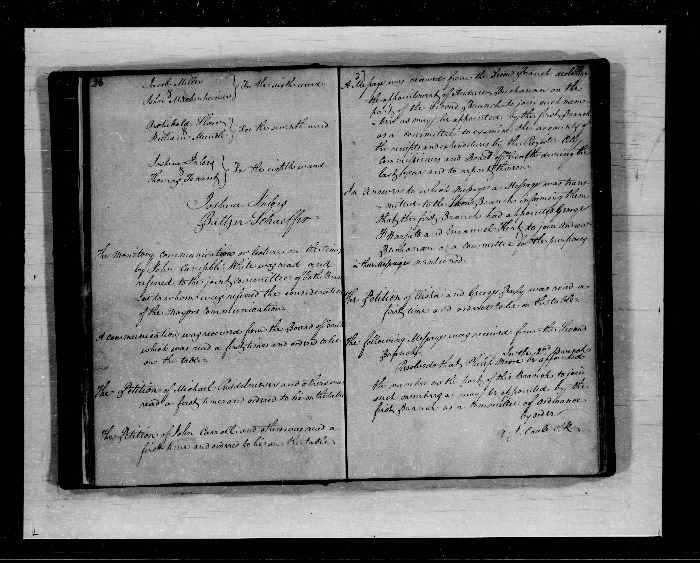 26
Jacob Miller
& John Mackenheimer } For the sixth ward
Archibald Shaw
& William } For the seventh ward
Joshua Inloes
& Thomas Tennant } For the eighth ward
Joshua Inloes
Baltzer Schaeffer
The Monitory Communication or lecture in the Times
by John Campbell White was read and
referred to the joint committee of both Bran
ches to whom was referred the consideration
of the Mayors Communication
A communication was received from the Board of Health
which was read a first time and ordered to lie
on the table
The Petition of Michael and others was
read a first time and ordered to lie on the table
The Petition of John Carroll and others was read a
first time and ordered to lie on the table
A Message was received from the Second Branch
the appointment of Andrew Buchanan on the
part of the Second Branch to join such mem
bers as may be appointed by the first Branch
as a committee to examine the accounts of
the receipts and expenditures by the Register City
Commissioners and Board of Health during the
last year and to report thereon
In Answer to which Message a Message was trans
mitted to the Second Branch informing them
that the first Branch had appointed George
F and Emanuel Kent to join Andrew
Buchanan as a committee for the purposes
in their Message mentioned
The Petition of and George was read a
first time and ordered to lie on the table
The following Message was received from the Second
Branch
In the 2nd Branch
Resolved that Philip Moore be appointed
the member on the part of this Branch to join
such members as may be appointed by the
first Branch as a Committee of Ordinance
by order
Clk